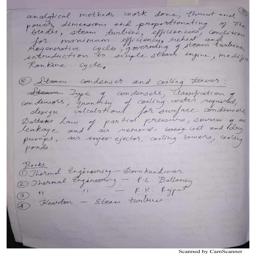 analytical methods work done, thrust and
power, dimension and proportionating of the
blades, steam turbine, efficiencies, condition
for maximum efficiency, reheat and
Regenerative cycle, governing of steam turbine,
introduction to simple steam engine, modified
Rankine cycle.
⑤ Steam condenser and cooling tower:
Type of condensers, classification of
condensers, quantity of cooling water required,
design calculations for surface condensers
Daltons law of partial pressure, source of air
leakage, and air removal
pumps, air ejector, cooling towers, cooling
ponds.
Books
① Thermal Engineering - Domkundwar
② Thermal Engineering - P.L Ballaney
③ " " - R.K Rajput
④ Kearton - Steam turbine
Scanned by CamScanner